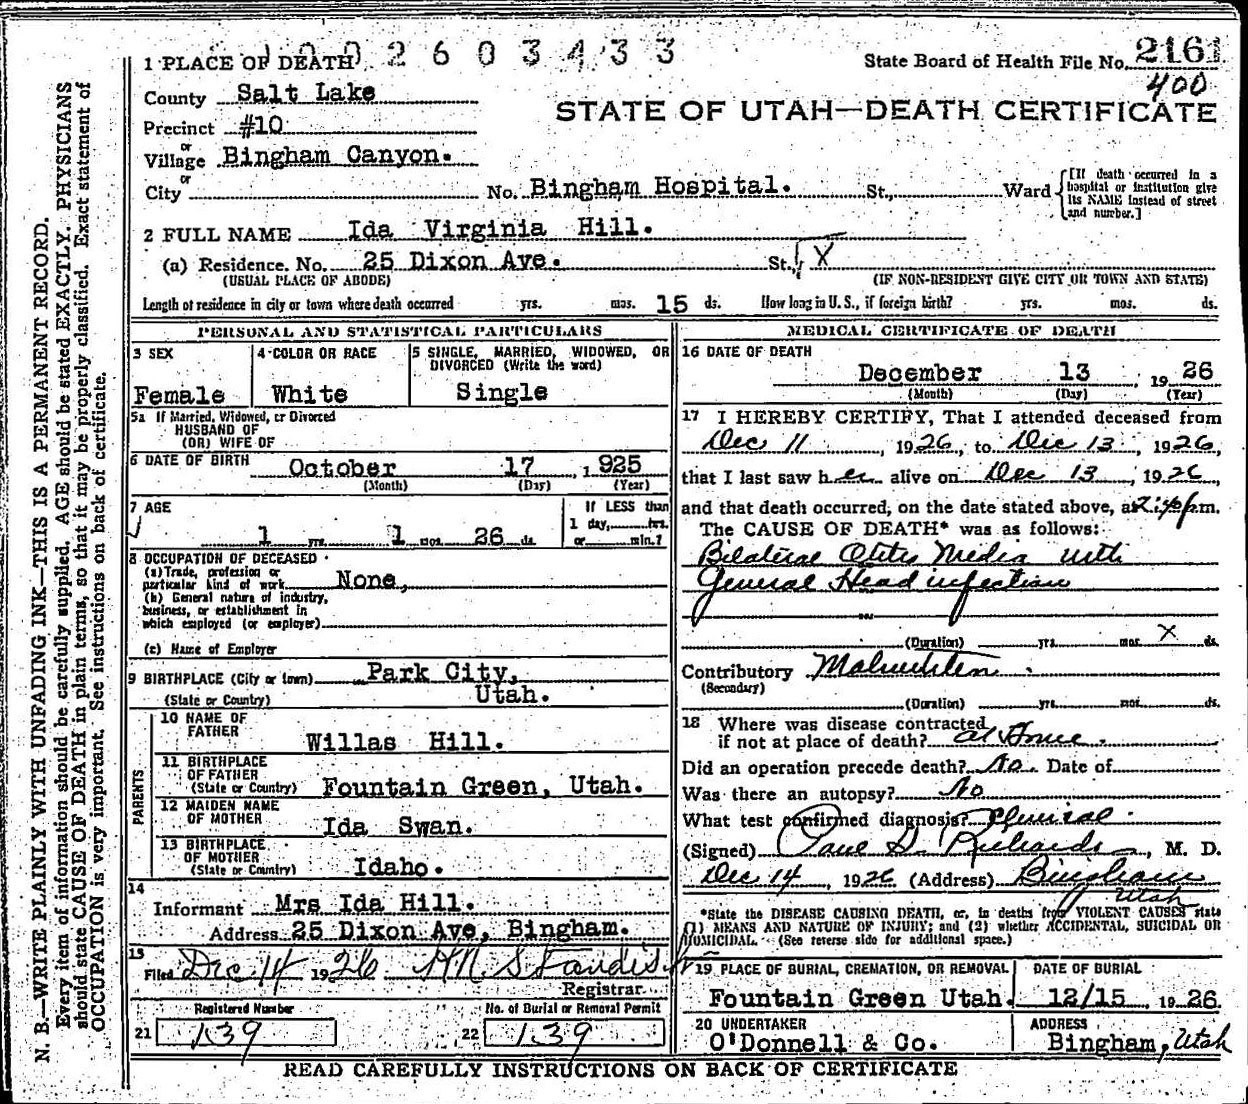 1002603433
State Board of Health File No. 2161
400
STATE OF UTAH—DEATH CERTIFICATE
1 PLACE OF DEATH
County Salt Lake
Precinct #10
or
Village Bingham Canyon.
or
City No. Bingham Hospital. St., Ward
[If death occurred in a hospital or institution give its NAME instead of street and number.]
2 FULL NAME Ida Virginia Hill.
(a) Residence. No. 25 Dixon Ave. St., X
(USUAL PLACE OF ABODE) (IF NON-RESIDENT GIVE CITY OR TOWN AND STATE)
Length of residence in city or town where death occurred yrs. mos. 15 ds. How long in U. S., if foreign birth? yrs. mos. ds.
PERSONAL AND STATISTICAL PARTICULARS
3 SEX
Female
4 COLOR OR RACE
White
5 SINGLE, MARRIED, WIDOWED, OR
DIVORCED (Write the word)
Single
5a If Married, Widowed, or Divorced
HUSBAND OF
(OR) WIFE OF
6 DATE OF BIRTH October 17, 1925
(Month) (Day) (Year)
7 AGE
1 yrs. 1 mos. 26 ds.
If LESS than
1 day, hrs.
or min.?
8 OCCUPATION OF DECEASED
(a) Trade, profession or
particular kind of work None,
(b) General nature of industry,
business, or establishment in
which employed (or employer)
(c) Name of Employer
9 BIRTHPLACE (City or town) Park City,
(State or Country) Utah.
PARENTS
10 NAME OF
FATHER
Willas Hill.
11 BIRTHPLACE
OF FATHER
(State or Country) Fountain Green, Utah.
12 MAIDEN NAME
OF MOTHER
Ida Swan.
13 BIRTHPLACE
OF MOTHER
(State or Country) Idaho.
14
Informant Mrs Ida Hill.
Address 25 Dixon Ave, Bingham.
15
Filed Dec 14 1926 H N Standish
Registrar
Registered Number No. of Burial or Removal Permit
21 139 22 139
MEDICAL CERTIFICATE OF DEATH
16 DATE OF DEATH
December 13, 1926
(Month) (Day) (Year)
17 I HEREBY CERTIFY, That I attended deceased from
Dec 11, 1926, to Dec 13, 1926,
that I last saw her alive on Dec 13, 1926,
and that death occurred, on the date stated above, at 2:40 p.m.
The CAUSE OF DEATH* was as follows:
Bilateral Otitis Media with
General Head infection
(Duration) yrs. mos. X ds.
Contributory Malnutrition.
(Secondary)
(Duration) yrs. mos. ds.
18 Where was disease contracted
if not at place of death? at Home.
Did an operation precede death? No. Date of
Was there an autopsy? No
What test confirmed diagnosis? Clinical
(Signed) Paul S. Richards, M. D.
Dec 14, 1926 (Address) Bingham
Utah
*State the DISEASE CAUSING DEATH, or, in deaths from VIOLENT CAUSES state
(1) MEANS AND NATURE OF INJURY; and (2) whether ACCIDENTAL, SUICIDAL OR
HOMICIDAL. (See reverse side for additional space.)
19 PLACE OF BURIAL, CREMATION, OR REMOVAL
Fountain Green Utah.
DATE OF BURIAL
12/15, 1926.
20 UNDERTAKER
O'Donnell & Co.
ADDRESS
Bingham, Utah
READ CAREFULLY INSTRUCTIONS ON BACK OF CERTIFICATE
N. B.—WRITE PLAINLY WITH UNFADING INK—THIS IS A PERMANENT RECORD.
Every item of information should be carefully supplied. AGE should be stated EXACTLY. PHYSICIANS
should state CAUSE OF DEATH in plain terms, so that it may be properly classified. Exact statement of
OCCUPATION is very important. See instructions on back of certificate.